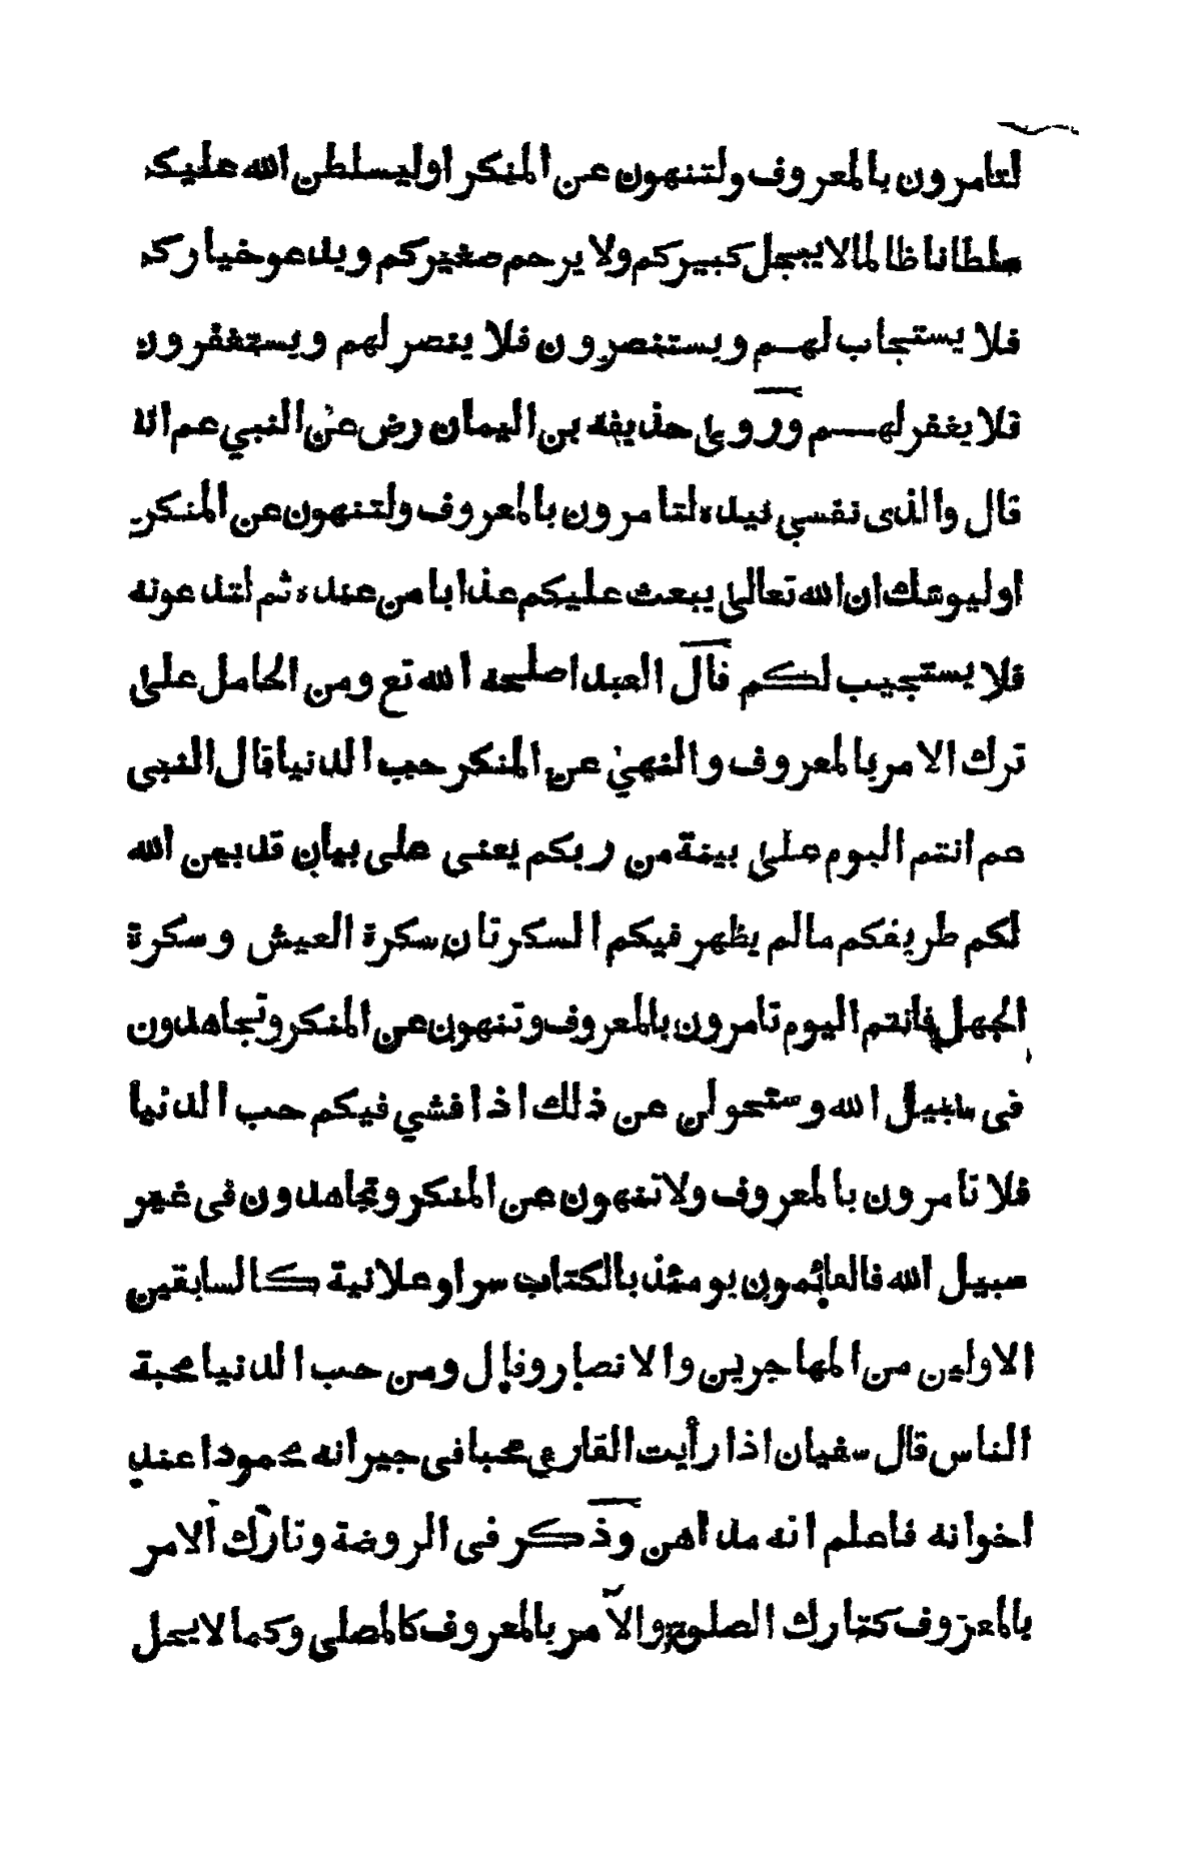 لتامرون بالمعروف ولتنهون عن المنكر اوليسلطن الله عليكم
سلطانا ظالما لا يبجل كبيركم ولا يرحم صغيركم ويدعو خياركم
فلا يستجاب لهم ويستنصرون فلا ينصر لهم ويستغفرون
فلا يغفر لهم وروى حذيفة بن اليمان رض عن النبي عم انه
قال والذى نفسي بيده لتامرون بالمعروف ولتنهون عن المنكر
اوليوشك ان الله تعالى يبعث عليكم عذابا من عنده ثم لتدعونه
فلا يستجيب لكم قال العبد اصلحه الله تع ومن الحامل على
ترك الامر بالمعروف والنهي عن المنكر حب الدنيا قال النبى
عم انتم اليوم على بينة من ربكم يعنى على بيان قد بين الله
لكم طريقكم مالم يظهر فيكم السكرتان سكرة العيش وسكرة
الجهل فانتم اليوم تامرون بالمعروف وتنهون عن المنكر وتجاهدون
فى سبيل الله وستحولن عن ذلك اذا فشي فيكم حب الدنيا
فلا تامرون بالمعروف ولا تنهون عن المنكر وتجاهدون فى غير
سبيل الله فالقائمون يومئذ بالكتاب سرا وعلانية كالسابقين
الاولين من المهاجرين والانصار وقال ومن حب الدنيا محبة
الناس قال سفيان اذا رأيت القارى محببا فى جيرانه محمودا عند
اخوانه فاعلم انه مداهن وذكر فى الروضة وتارك الامر
بالمعروف كتارك الصلوة والآمر بالمعروف كالمصلي وكما لا يحل